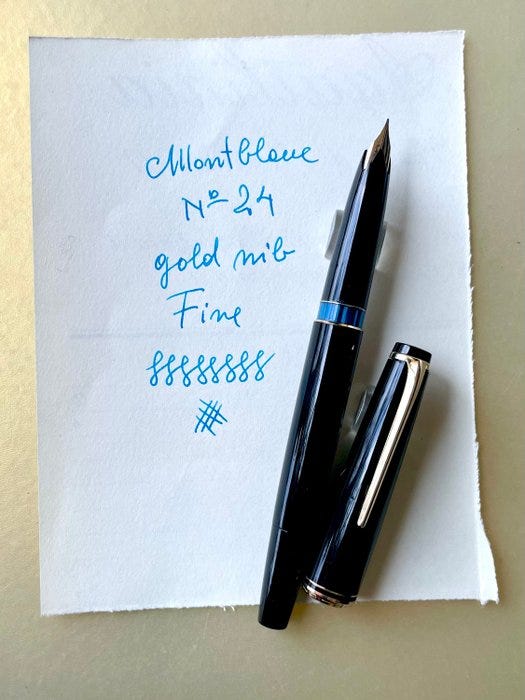 Montblanc
Nº 24
gold nib
Fine